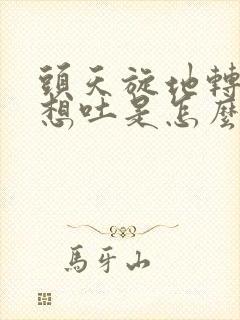 頭天旋地轉
想吐是怎麼
馬牙山